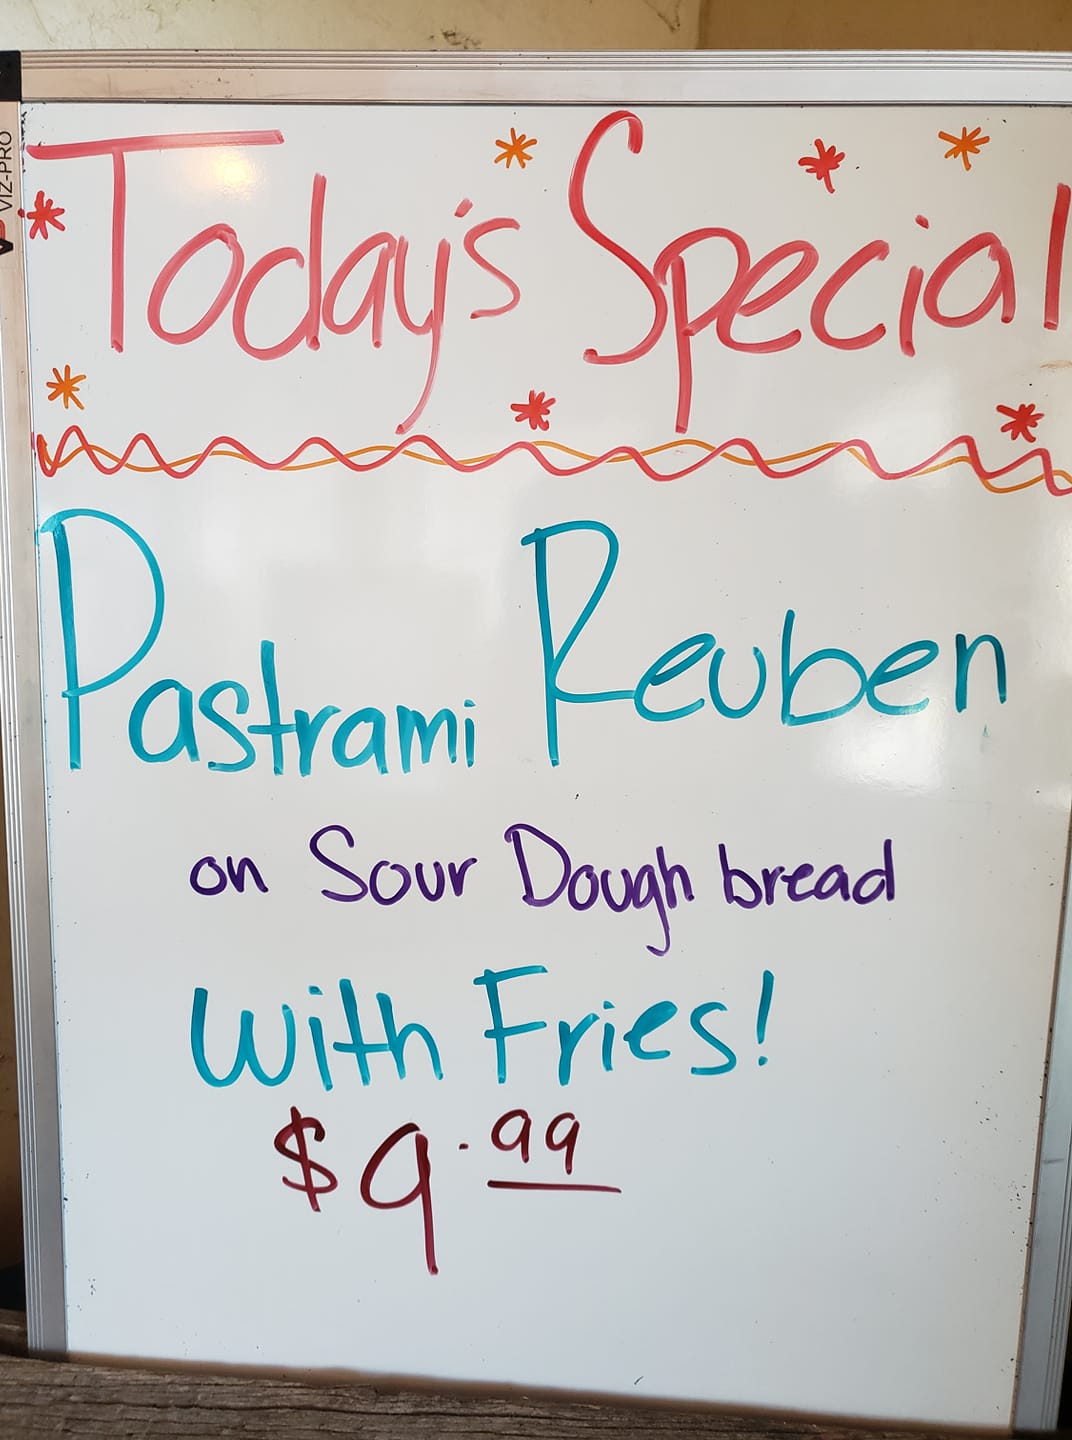 VIZ-PRO
Today's Special
Pastrami Reuben
on Sour Dough bread
with Fries!
$9.99